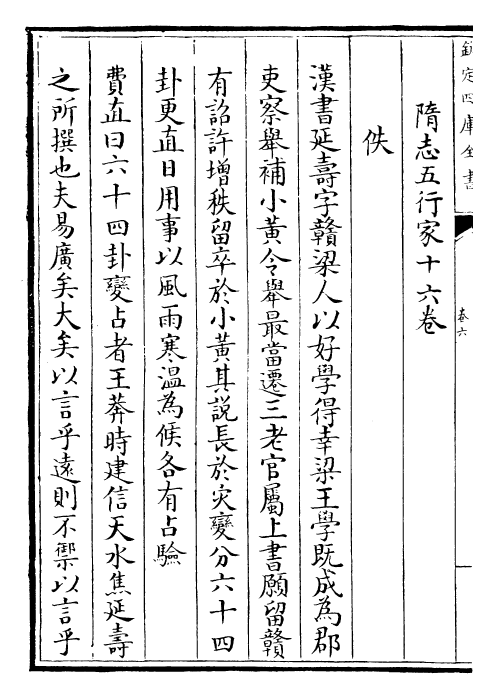 欽定四庫全書
卷六
隋志五行家十六卷
佚
漢書延壽字贛梁人以好學得幸梁王學既成為郡
吏察舉補小黃令舉最當遷三老官屬上書願留贛
有詔許增秩留卒於小黃其説長於災變分六十四
卦更直日用事以風雨寒溫為候各有占驗
費直曰六十四卦變占者王莽時建信天水焦延壽
之所撰也夫易廣矣大矣以言乎遠則不禦以言乎